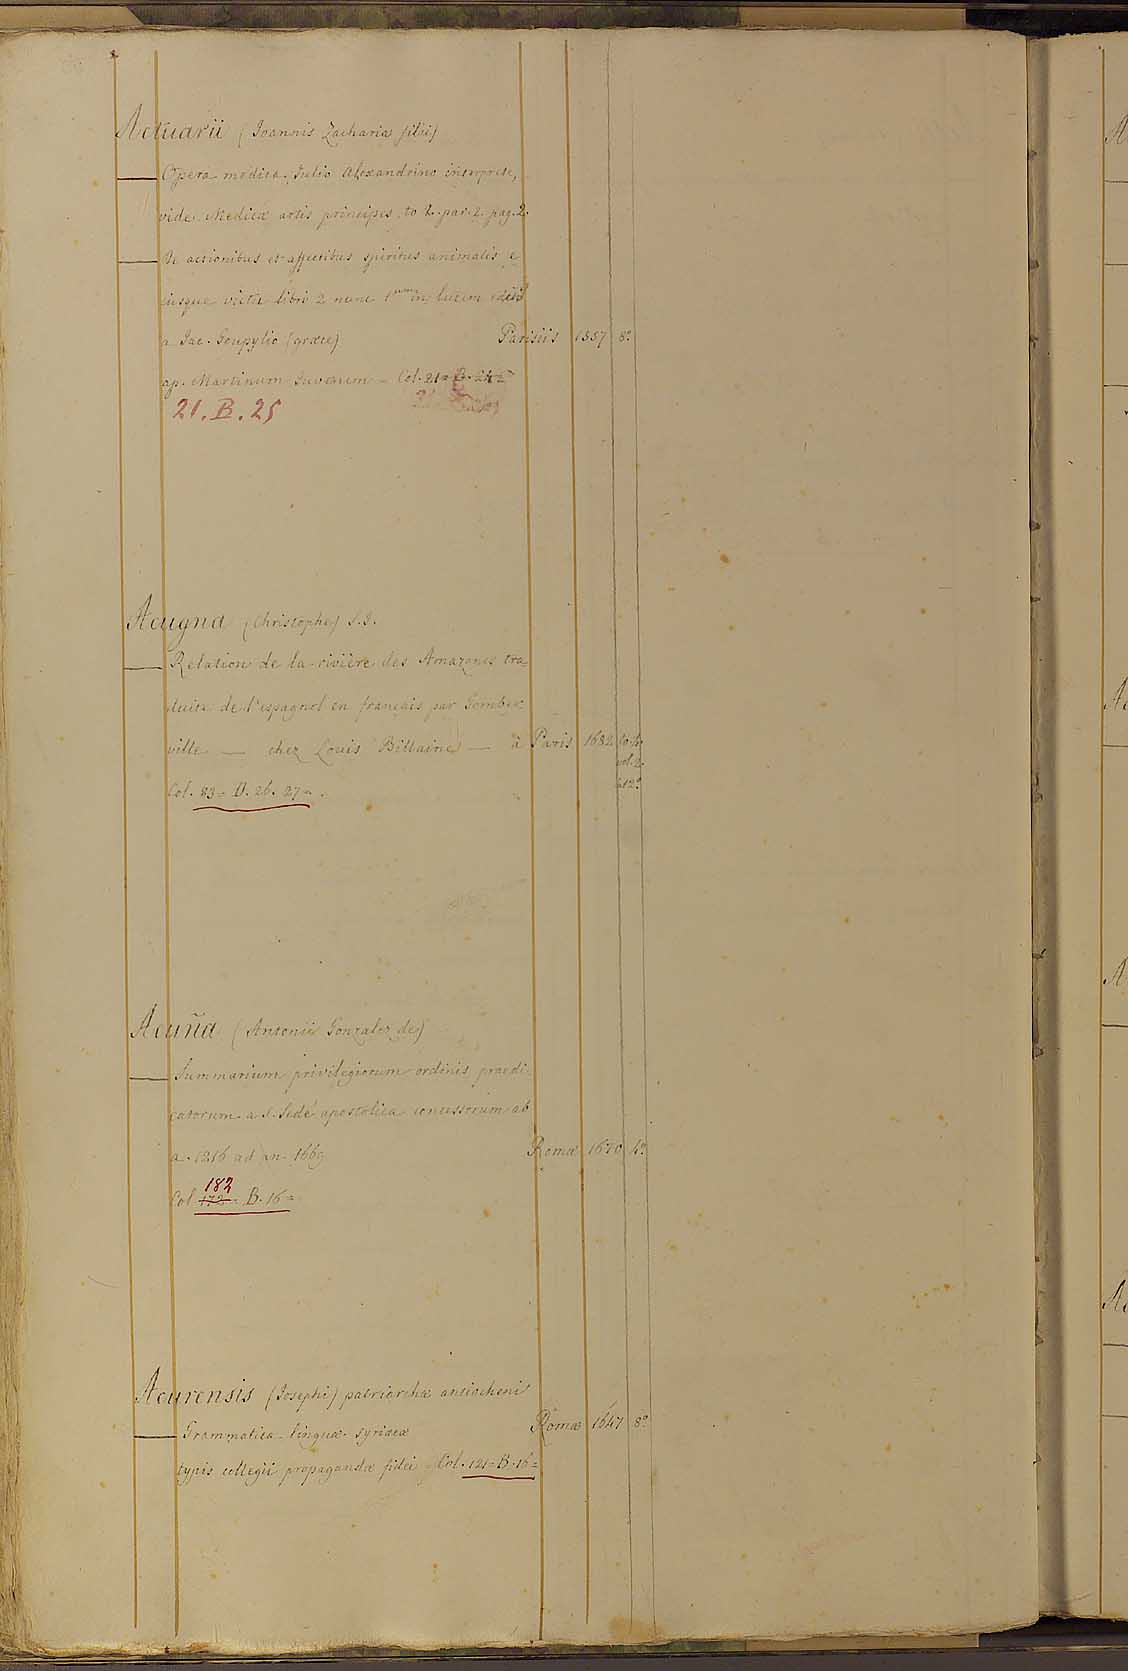 Actuarii (Joannis Zachariæ filii)
Opera medica Julio Alexandrino interprete,
vide Medicæ artis principes to 2. par. 2. pag. 2.
De actionibus et affectibus spiritus animalis e
iusque victu libri 2 nunc 1um in lucem editi
a Jac. Goupylio (græce) Parisiis 1557 8º
ap. Martinum Juvenem - Col. 21 = B. 24 =
21. B. 25
Acugna (Christophe) S. J.
Relation de la rivière des Amazones tra=
duite de l'espagnol en français par Gomber=
ville — chez Louis Billaine — à Paris 1682 to. 4.
vol. 2.
in 12º
Col. 83 = D. 26. 27 =
Acuña (Antonii Gonzalez de)
Summarium privilegiorum ordinis prædi=
catorum a S. Sede apostolica concessorum ab
a. 1216 ad an. 1669 Romæ 1670 4º
182
Col 172 = B. 16 =
Acurensis (Josephi) patriarchæ antiocheni
Grammatica linguæ syriacæ Romæ 1647 8º
typis collegii propagandæ fidei Col. 121 = B. 16 =